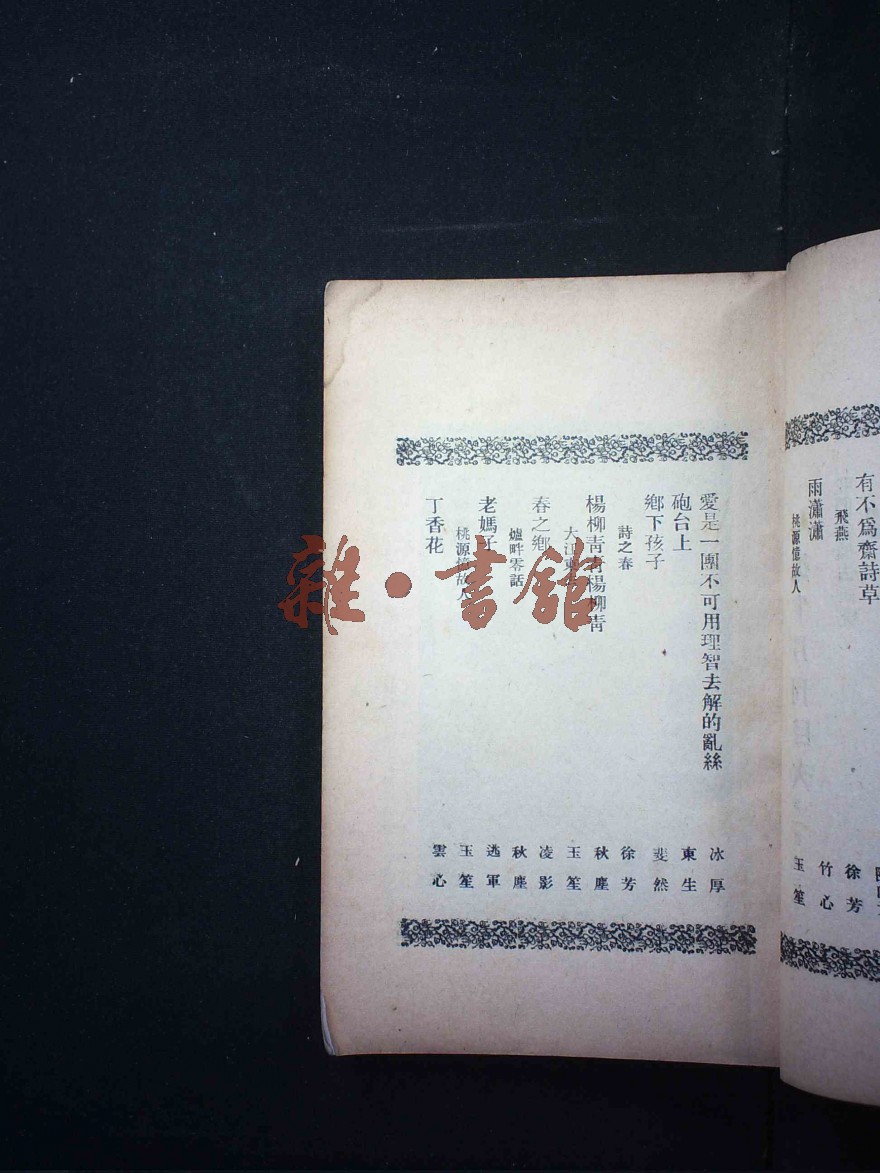 有不爲齋詩草
飛燕 徐芳
雨瀟瀟 竹心
桃源憶故人 玉笙
愛是一團不可用理智去解的亂絲 冰厚
砲台上 東生
鄉下孩子 斐然
詩之春 徐芳
楊柳靑靑楊柳靑 秋塵
大江東 玉笙
春之鄉 凌影
爐畔零話 秋塵
老媽子 逃軍
桃源憶故人 玉笙
丁香花 雲心
雜·書館